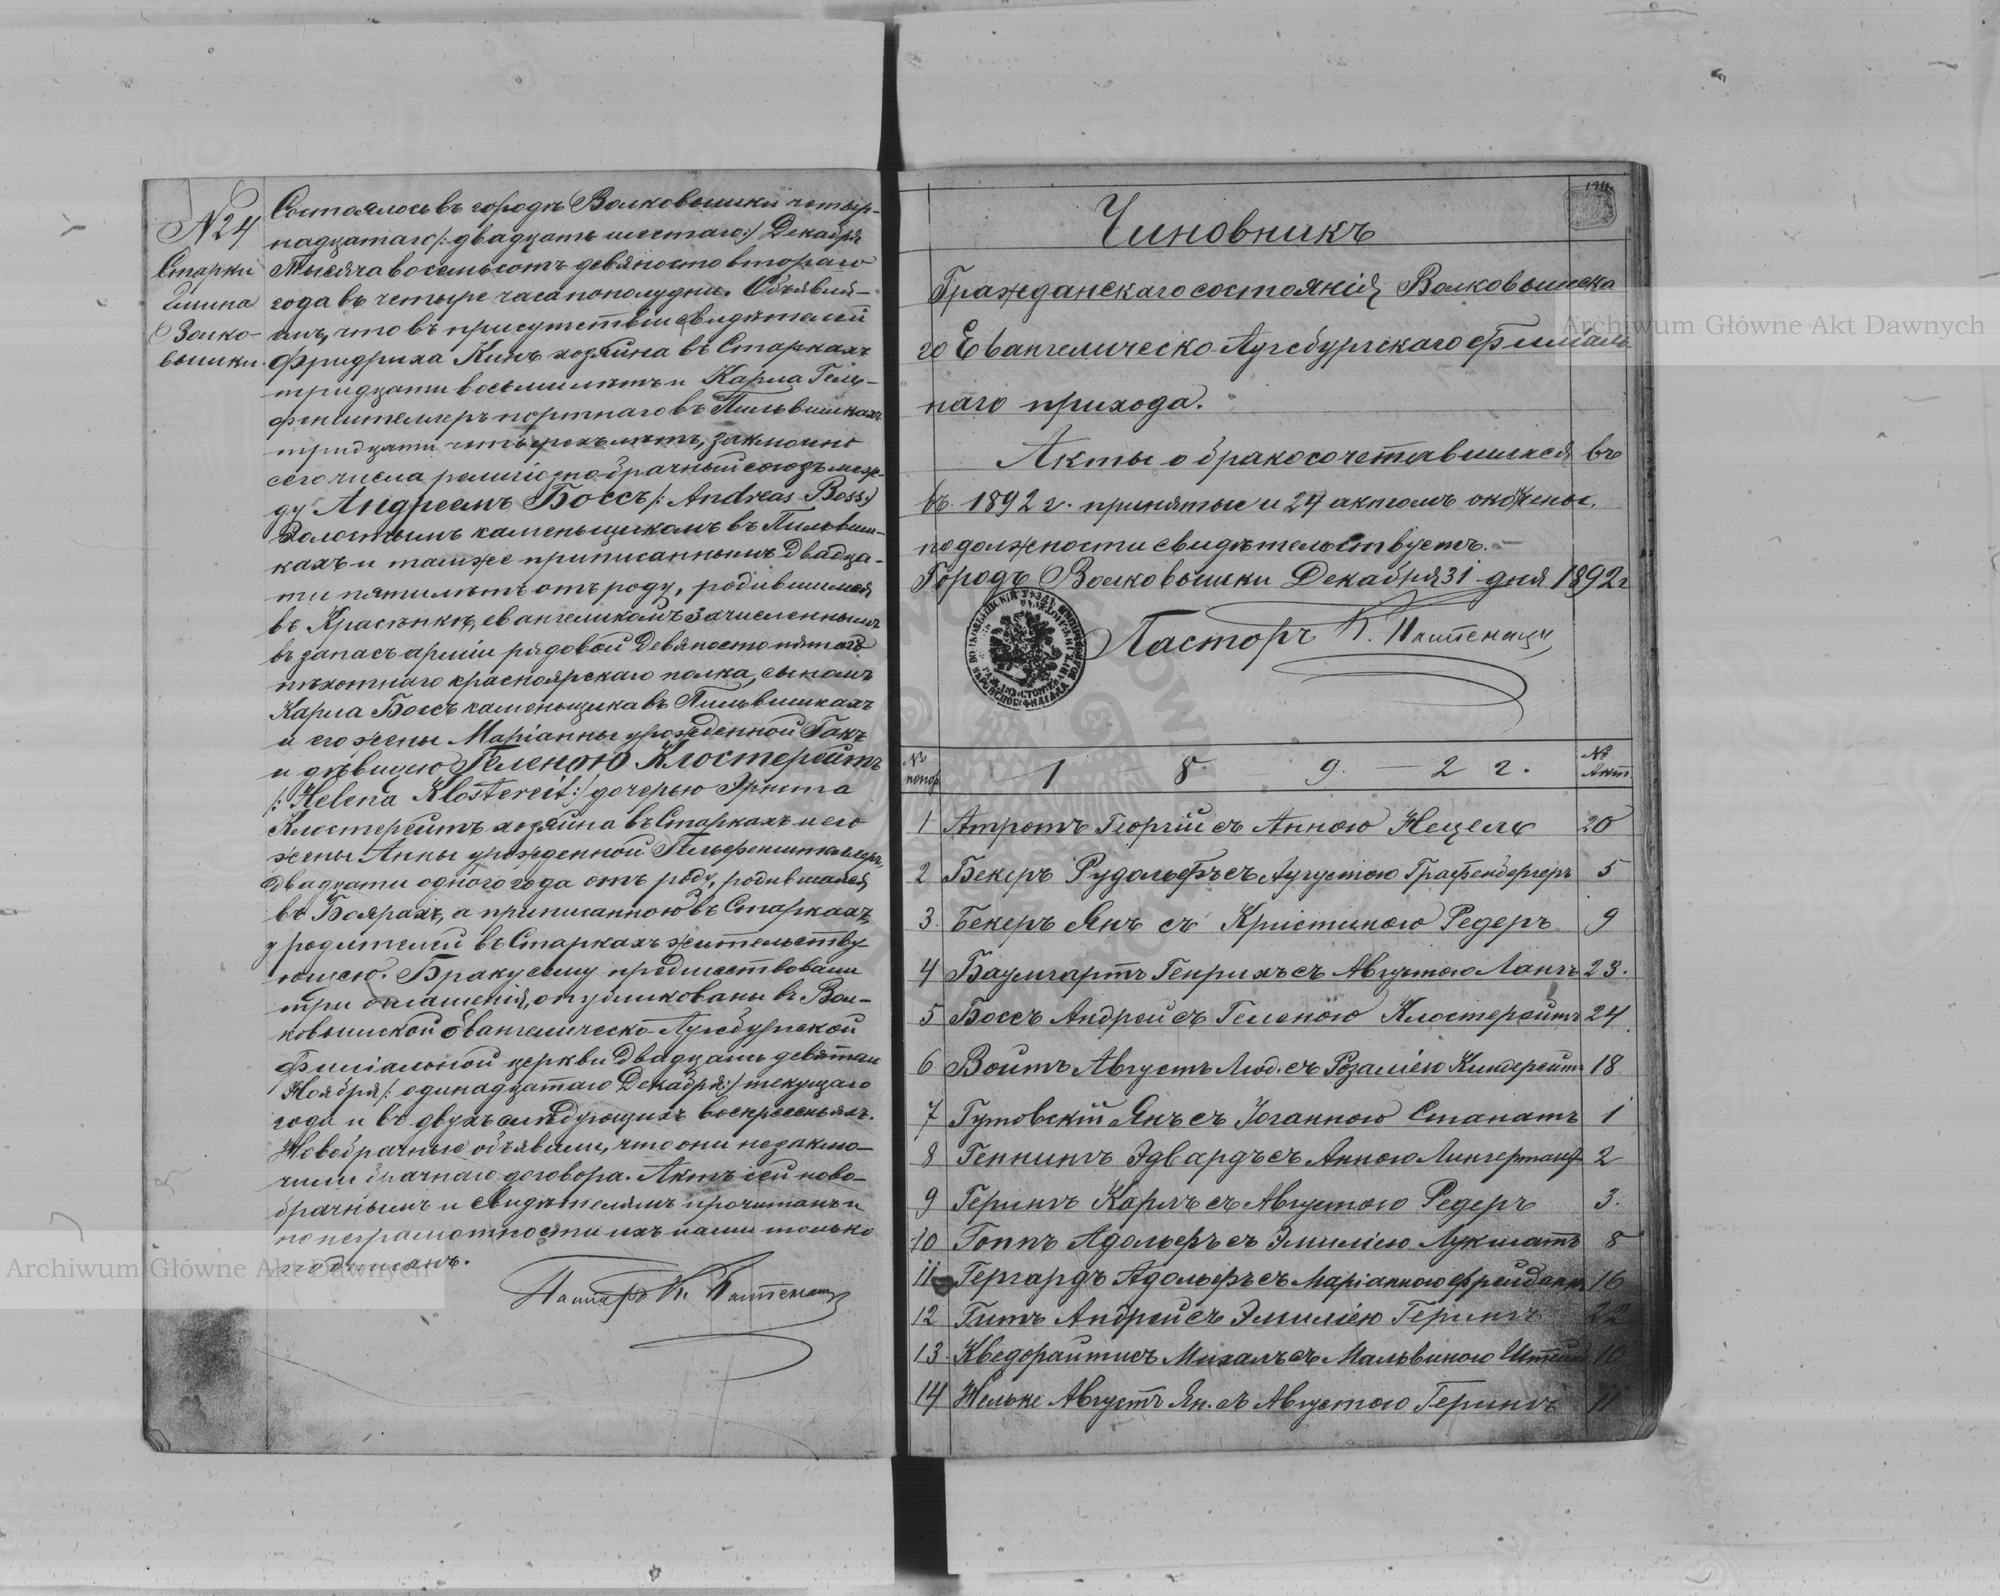 № 24
Старки
Гмина
Волко-
вышки.
Состоялось въ городѣ Волковышки четыр-
надцатаго /: двадцать шестаго :/ Декабря
тысяча восемьсотъ девяносто втораго
года въ четыре часа пополудни. Объявля-
емъ, что въ присутствіи свидѣтелей
Фридриха Кинъ хозяина въ Старкахъ
тридцати восьми лѣтъ и Карла Гель-
фенштеллеръ портнаго въ Пильвишкахъ
тридцати четырехъ лѣтъ, заключено
сего числа религіознобрачный союзъ меж-
ду Андреемъ Боссъ /: Andreas Boss :/
холостымъ каменьщикомъ въ Пильвиш-
кахъ и тамже приписаннымъ двадца-
ти пяти лѣтъ отъ роду, родившимся
въ Красѣнкѣ, евангеликомъ зачисленнымъ
въ запасъ арміи рядовой девяносто пятаго
пѣхотнаго красноярскаго полка, сыномъ
Карла Боссъ каменьщика въ Пильвишкахъ
и его жены Маріанны урожденной Гакъ
и дѣвицею Геленою Клостерейтъ
/: Helena Klostereit :/ дочерью Эрнста
Клостерейтъ хозяина въ Старкахъ и его
жены Анны урожденной Гельфенштеллеръ,
двадцати одного года отъ роду, родившейся
въ Боярахъ, а приписанною въ Старкахъ
у родителей въ Старкахъ жительству
ющею. Браку сему предшествовали
три оглашенія, опубликованы въ Вол-
ковышской Евангелическо-Аугсбургской
Филіальной церкви двадцать девятаго
Ноября /: одинадцатаго Декабря :/ текущаго
года и въ двухъ слѣдующихъ воскресеньяхъ.
Новобрачные объявили, что они незаклю-
чили брачнаго договора. Актъ сей ново-
брачнымъ и свидѣтелямъ прочитанъ и
по неграмотности ихъ нами только
подписанъ.
Пасторъ К.
Чиновникъ
Гражданскаго состоянія Волковышска
го Евангелическо-Аугсбургскаго Филіаль
наго прихода.
Акты о бракосочетавшихся въ
въ 1892 г. принятые и 24 актомъ окончены,
по должности свидѣтельствуетъ. —
Городъ Волковышки Декабря 31 дня 1892 г
Пасторъ К.
№ попор. 1 8 9 2 г. № Акт.
1 Атротъ Георгій съ Анною Нецель 20
2 Бекеръ Рудольфъ съ Аугустою Графенбергеръ 5
3. Бекеръ Янъ съ Кристиною Редеръ 9
4 Баумгартъ Генрихъ съ Августою Лангъ 23.
5 Боссъ Андрей съ Геленою Клостерейтъ 24
6 Войтъ Августъ Люд. съ Розаліею Киндерейтъ 18
7 Гутовскій Янъ съ Іоганною Стапатъ 1
8 Геннингъ Эдвардъ съ Анною 2
9 Герингъ Карлъ съ Августою Редеръ 3.
10 Гоппъ Адольфъ съ Эмиліею Лукшатъ 8
11 Гергардъ Адольфъ съ Маріанною 16
12 Гитъ Андрей съ Эмиліею Герингъ 22
13. Кведорайтисъ Михалъ съ Мальвиною 10
14 Нельке Августъ Ян. съ Августою Герингъ 11
Archiwum Główne Akt Dawnych
Archiwum Główne Akt Dawnych